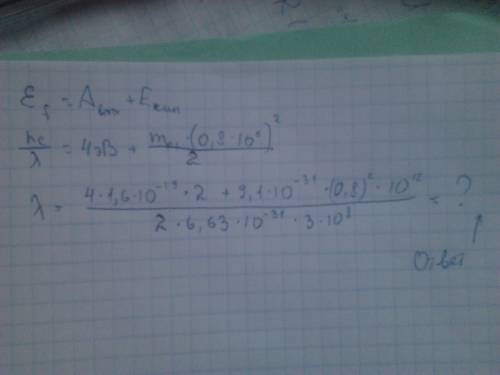 Ef = Aвых + Eкин
hc/λ = 4эВ + me · (0,8·10⁶)²/2
λ = 4·1,6·10⁻¹⁹·2 + 9,1·10⁻³¹·(0,8)²·10¹²/2·6,63·10⁻³⁴·3·10⁸ = ?
Ответ